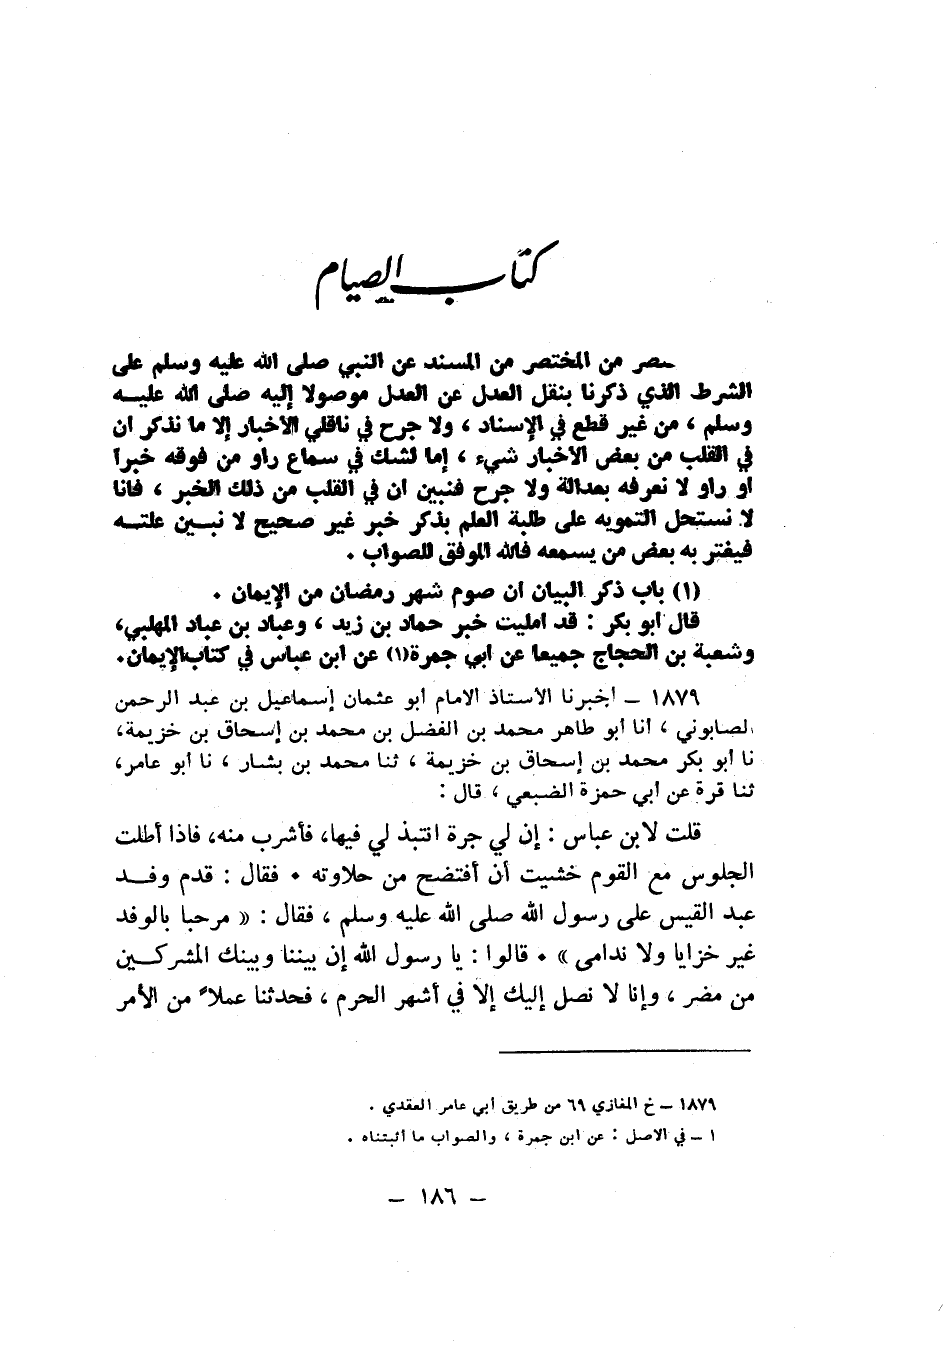 كتاب الصيام
من المختصر من المسند عن النبي صلى الله عليه وسلم على
الشرط الذي ذكرنا بنقل العدل عن العدل موصولا إليه صلى الله عليــه
وسلم ، من غير قطع في الإسناد ، ولا جرح في ناقلي الاخبار إلا ما نذكر ان
في القلب من بعض الاخبار شيء ، إما لشك في سماع راو من فوقه خبرا
او راو لا نعرفه بعدالة ولا جرح فنبين ان في القلب من ذلك الخبر ، فانا
لا نستحل التمويه على طلبة العلم بذكر خبر غير صحيح لا نبــين علتــه
فيفتر به بعض من يسمعه فالله الموفق للصواب .
(١) باب ذكر البيان ان صوم شهر رمضان من الإيمان .
قال ابو بكر : قد امليت خبر حماد بن زيد ، وعباد بن عباد المهلبي،
وشعبة بن الحجاج جميعا عن ابي جمرة(١) عن ابن عباس في كتاب الإيمان.
١٨٧٩ – أخبرنا الاستاذ الامام أبو عثمان إسماعيل بن عبد الرحمن
لصابوني ، أنا أبو طاهر محمد بن الفضل بن محمد بن إسحاق بن خزيمة،
نا أبو بكر محمد بن إسحاق بن خزيمة ، ثنا محمد بن بشار ، نا أبو عامر،
ثنا قرة عن أبي حمزة الضبعي ، قال :
قلت لابن عباس : إن لي جرة انتبذ لي فيها، فأشرب منه، فاذا أطلت
الجلوس مع القوم خشيت أن أفتضح من حلاوته . فقال : قدم وفــد
عبد القيس على رسول الله صلى الله عليه وسلم ، فقال : « مرحبا بالوفد
غير خزايا ولا ندامى » . قالوا : يا رسول الله إن بيننا وبينك المشركــين
من مضر ، وإنا لا نصل إليك إلا في أشهر الحرم ، فحدثنا عملاً من الأمر
١٨٧٩ – خ المغازي ٦٩ من طريق أبي عامر العقدي .
١ – في الاصل : عن ابن جمرة ، والصواب ما أثبتناه .
– ١٨٦ –